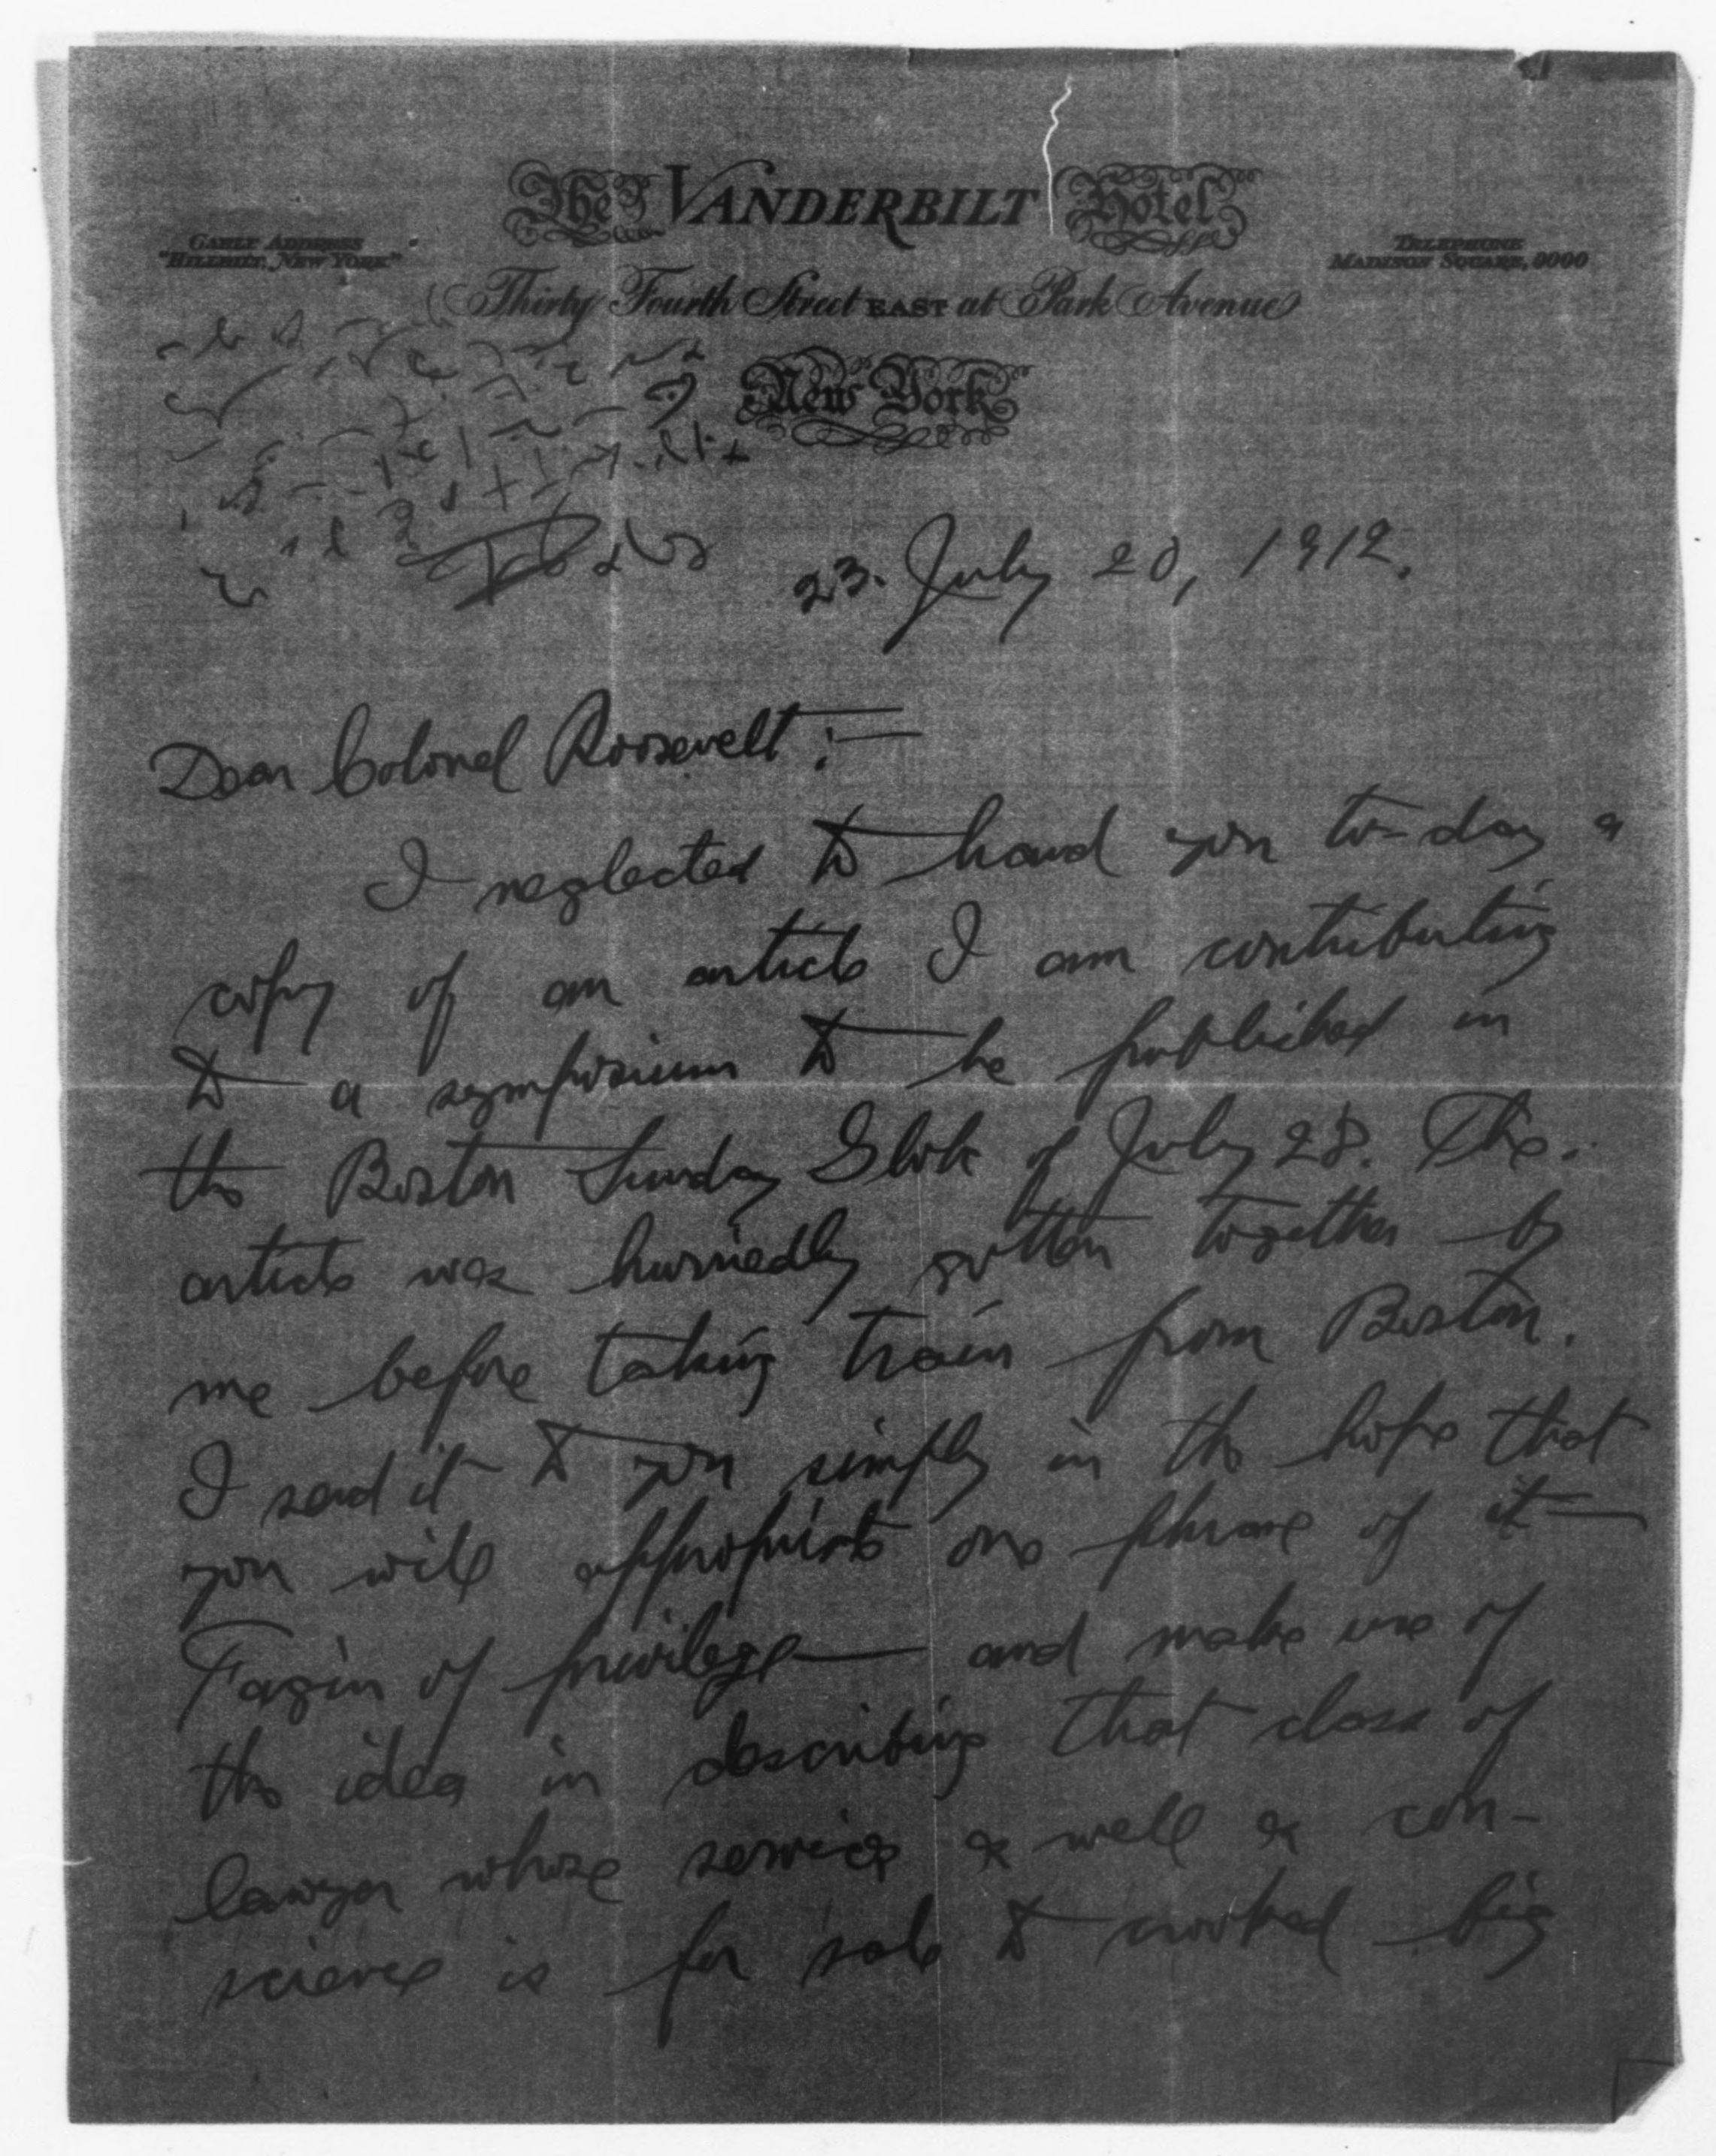 The VANDERBILT Hotel
CABLE ADDRESS
"HILLBILT, NEW YORK"
TELEPHONE
MADISON SQUARE, 9000
Thirty Fourth Street EAST at Park Avenue
New York
23. July 20, 1912.
Dear Colonel Roosevelt:
I neglected to hand you to-day a
copy of an article I am contributing
to a symposium to be published in
the Boston Sunday Globe of July 28. The
article was hurriedly gotten together by
me before taking train from Boston.
I send it to you simply in the hope that
you will appropriate one phrase of it—
Fagin of privilege— and make use of
the idea in describing that class of
lawyer whose service as well as con-
science is for sale to crooked big